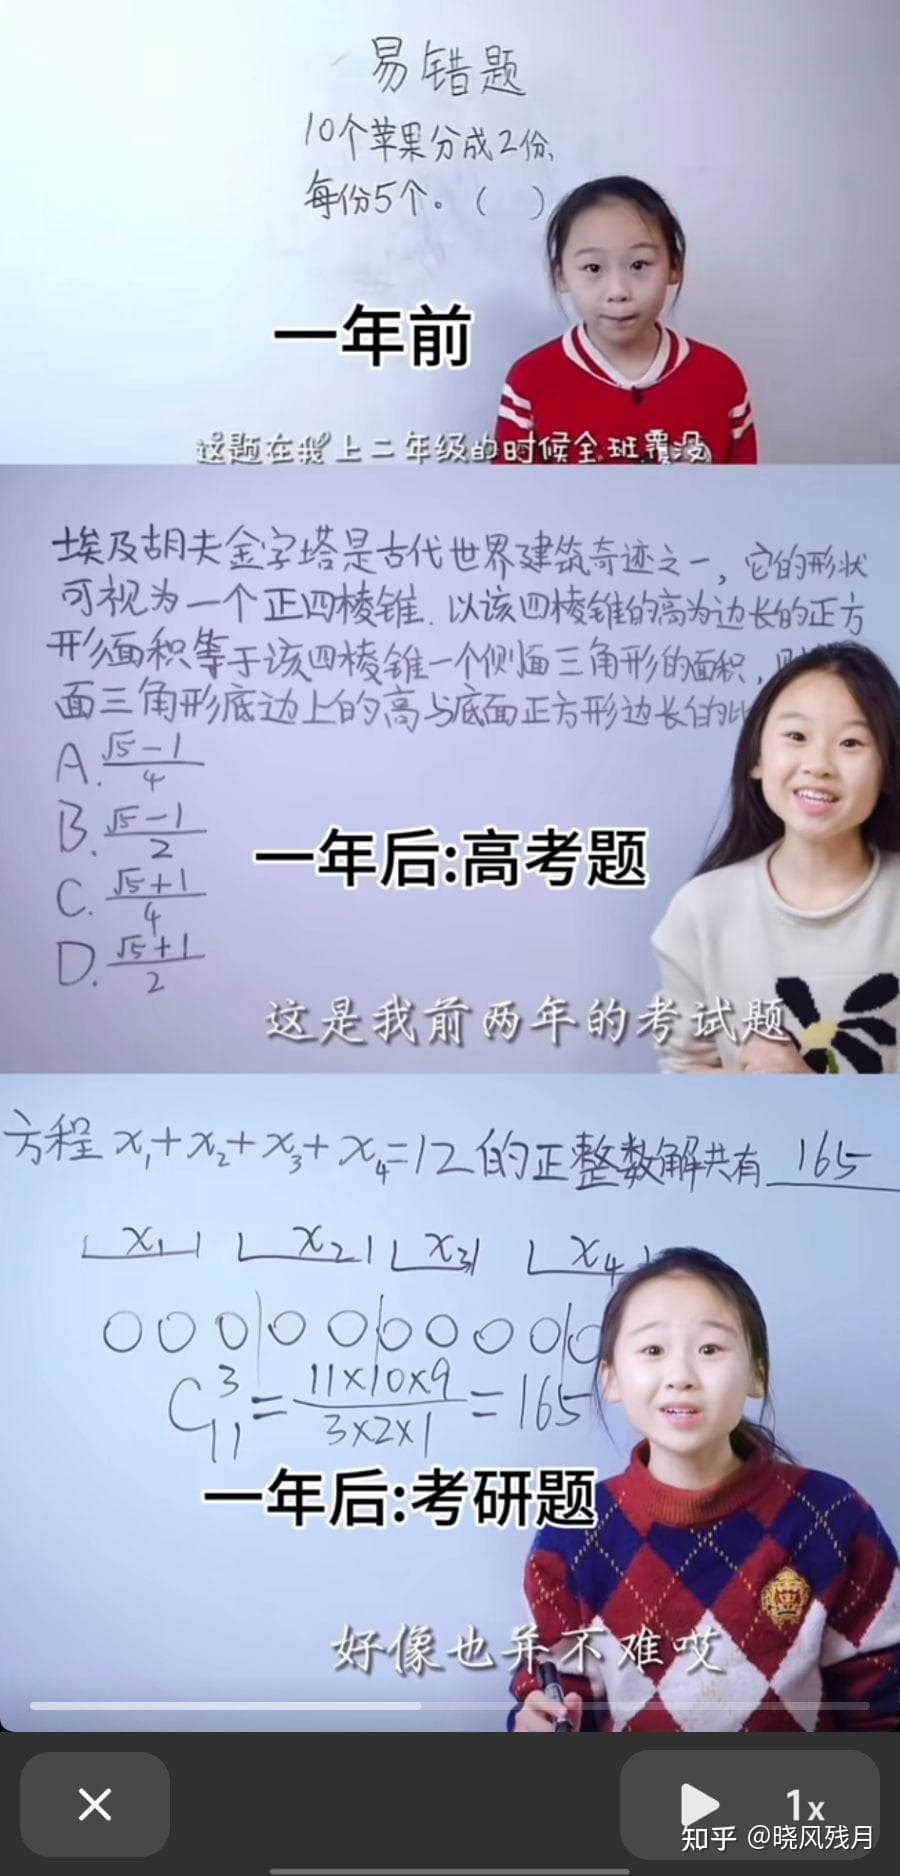 易错题
10个苹果分成2份,
每份5个。( )
一年前
这题在我上二年级的时候全班覆没
埃及胡夫金字塔是古代世界建筑奇迹之一，它的形状
可视为一个正四棱锥.以该四棱锥的高为边长的正方
形面积等于该四棱锥一个侧面三角形的面积，
面三角形底边上的高与底面正方形边长的比
A. √5-1/4
B. √5-1/2
C. √5+1/4
D. √5+1/2
一年后:高考题
这是我前两年的考试题
方程 x₁+x₂+x₃+x₄=12的正整数解共有 165
x₁ x₂ x₃ x₄
C₁₁³=11×10×9/3×2×1=165
一年后:考研题
好像也并不难哎
1x
知乎 @晓风残月